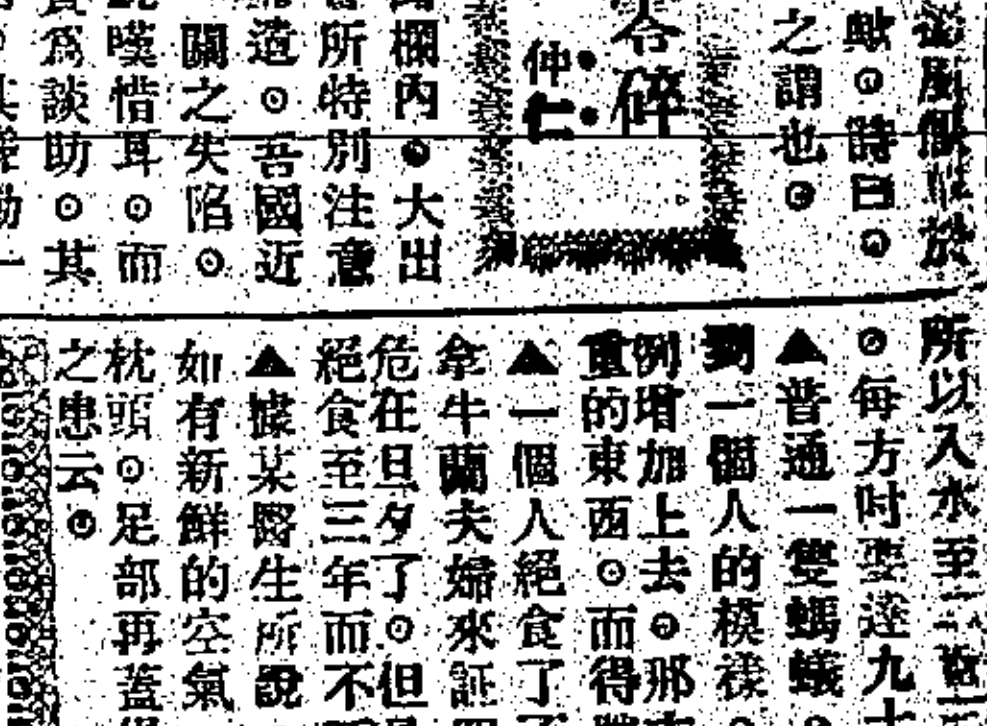 於
歟。時曰。
之謂也。
碎
仲仁
欄內。大出
所特別注意
道。吾國近
關之失陷。
嘆惜耳。而
爲談助。其
所以入水至三百
。每方吋要達九十
▲普通一隻螞蟻
到一個人的模樣
例增加上去。那
重的東西。而得
▲一個人絕食了
拿牛蘭夫婦來証
危在旦夕了。但
絕食至三年而不
▲據某醫生所說
如有新鮮的空氣
枕頭。足部再蓋
之患云。